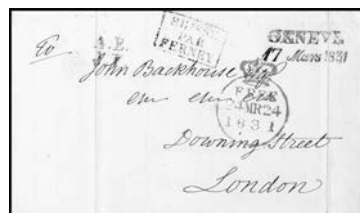 SUISSE
PAR
FERNEY
GENEVE
17 Mars 1831
To
A.E.
John Backhouse Esq
FREE
24MR24
1831
Downing Street
London